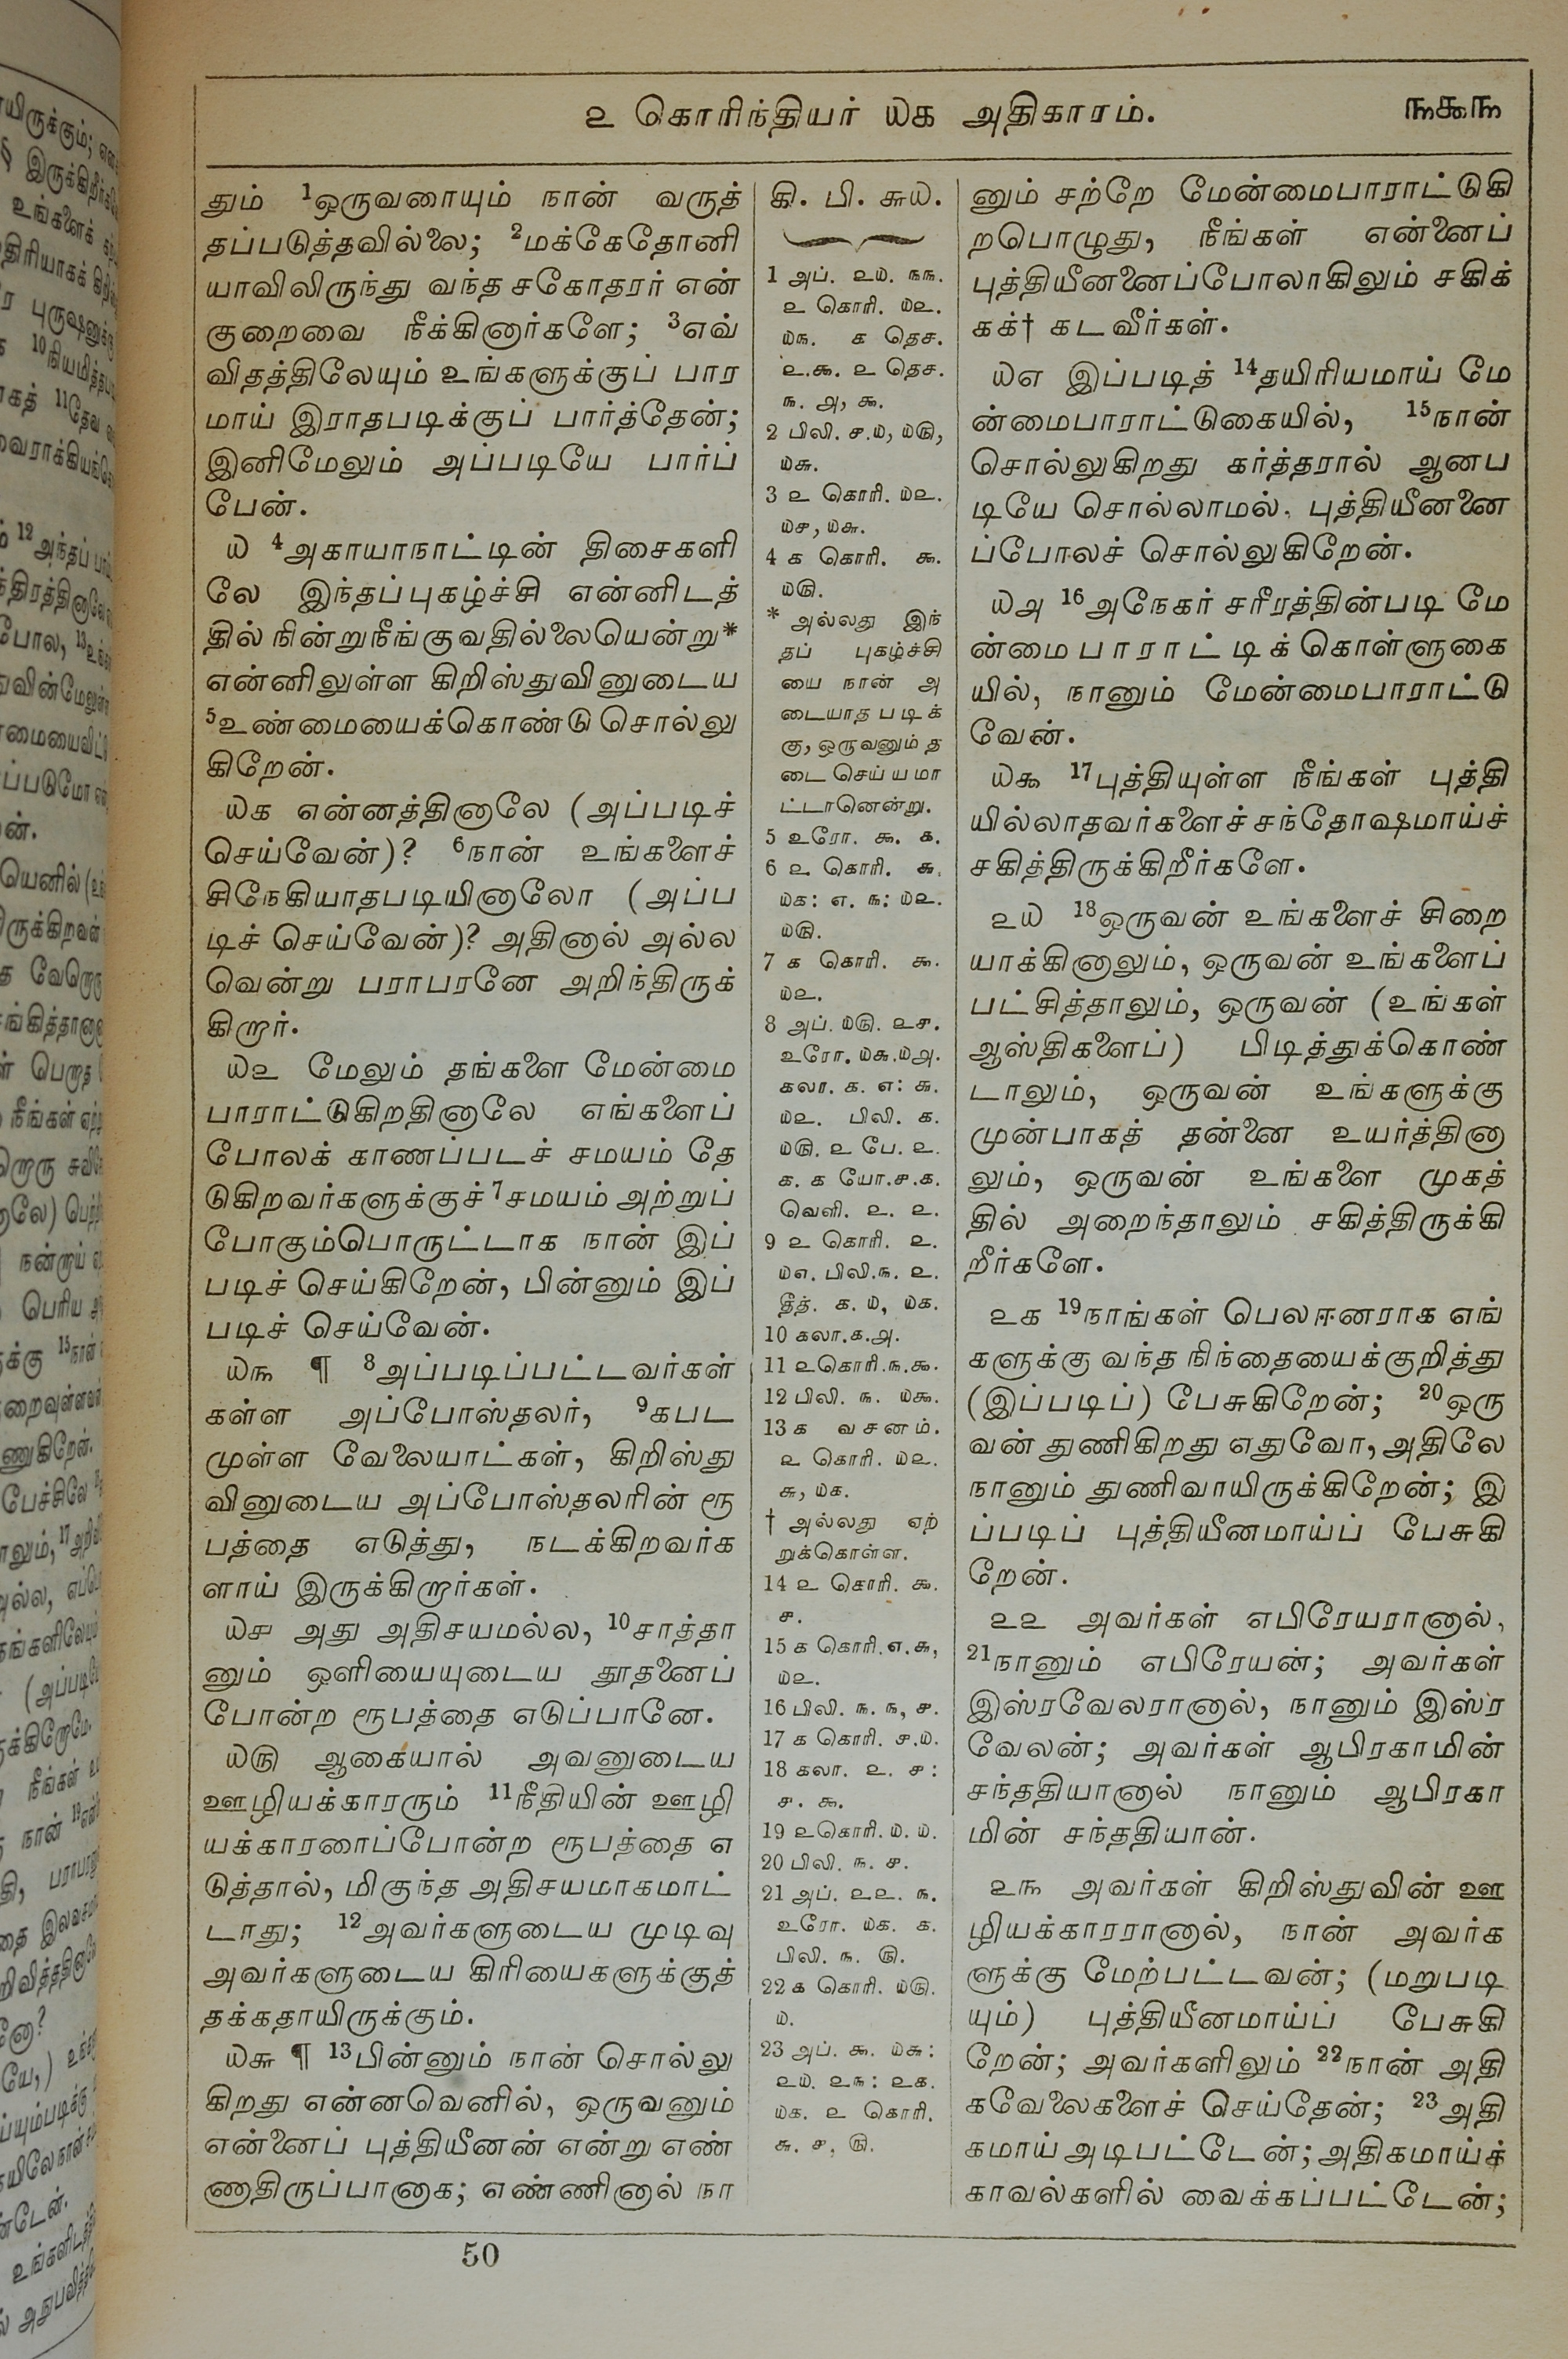 ௨ கொரிந்தியர் ௰௧ அதிகாரம்.
௩௯௩
தும் 1ஒருவரையும் நான் வருத்
தப்படுத்தவில்லை; 2மக்கேதோனி
யாவிலிருந்து வந்த சகோதரர் என்
குறைவை நீக்கினார்களே; 3எவ்
விதத்திலேயும் உங்களுக்குப் பார
மாய் இராதபடிக்குப் பார்த்தேன்;
இனிமேலும் அப்படியே பார்ப்
பேன்.
௰ 4அகாயாநாட்டின் திசைகளி
லே இந்தப்புகழ்ச்சி என்னிடத்
தில் நின்றுநீங்குவதில்லையென்று*
என்னிலுள்ள கிறிஸ்துவினுடைய
5உண்மையைக்கொண்டு சொல்லு
கிறேன்.
௰௧ என்னத்தினாலே (அப்படிச்
செய்வேன்)? 6நான் உங்களைச்
சிநேகியாதபடியினாலோ (அப்ப
டிச் செய்வேன்)? அதினால் அல்ல
வென்று பராபரனே அறிந்திருக்
கிறார்.
௰௨ மேலும் தங்களை மேன்மை
பாராட்டுகிறதினாலே எங்களைப்
போலக் காணப்படச் சமயம் தே
டுகிறவர்களுக்குச் 7சமயம் அற்றுப்
போகும்பொருட்டாக நான் இப்
படிச் செய்கிறேன், பின்னும் இப்
படிச் செய்வேன்.
௰௩ ¶ 8அப்படிப்பட்டவர்கள்
கள்ள அப்போஸ்தலர், 9கபட
முள்ள வேலையாட்கள், கிறிஸ்து
வினுடைய அப்போஸ்தலரின் ரூ
பத்தை எடுத்து, நடக்கிறவர்க
ளாய் இருக்கிறார்கள்.
௰௪ அது அதிசயமல்ல, 10சாத்தா
னும் ஒளியையுடைய தூதனைப்
போன்ற ரூபத்தை எடுப்பானே.
௰௫ ஆகையால் அவனுடைய
ஊழியக்காரரும் 11நீதியின் ஊழி
யக்காரரைப்போன்ற ரூபத்தை எ
டுத்தால், மிகுந்த அதிசயமாகமாட்
டாது; 12அவர்களுடைய முடிவு
அவர்களுடைய கிரியைகளுக்குத்
தக்கதாயிருக்கும்.
௰௬ ¶ 13பின்னும் நான் சொல்லு
கிறது என்னவெனில், ஒருவனும்
என்னைப் புத்தியீனன் என்று எண்
ணாதிருப்பானாக; எண்ணினால் நா
கி. பி. ௬௰.
1 அப். ௨௰. ௩௩.
௨ கொரி. ௰௨.
௰௩. ௧ தெச.
௨.௯. ௨ தெச.
௩. ௮, ௯.
2 பிலி. ௪.௰, ௰௫,
௰௬.
3 ௨ கொரி. ௰௨.
௰௪, ௰௬.
4 ௧ கொரி. ௯.
௰௫.
* அல்லது இந்
தப் புகழ்ச்சி
யை நான் அ
டையாத படிக்
கு, ஒருவனும் த
டை செய்யமா
ட்டானென்று.
5 உரோ. ௯. ௧.
6 ௨ கொரி. ௬.
௰௧: ௭. ௩: ௰௨.
௰௫.
7 ௧ கொரி. ௯.
௰௨.
8 அப். ௰௫. ௨௪.
உரோ. ௰௬.௰௮.
கலா. ௧. ௭: ௬.
௰௨. பிலி. ௧.
௰௫. ௨ பே. ௨.
௧. ௧ யோ.௪.௧.
வெளி. ௨. ௨.
9 ௨ கொரி. ௨.
௰௭. பிலி.௩. ௨.
தீத். ௧. ௰, ௰௧.
10 கலா.௧.௮.
11 ௨கொரி.௩.௯.
12 பிலி. ௩. ௰௯.
13 ௧ வசனம்.
௨ கொரி. ௰௨.
௬, ௰௧.
† அல்லது ஏற்
றுக்கொள்ள.
14 ௨ கொரி. ௯.
௪.
15 ௧ கொரி.௭.௬,
௰௨.
16 பிலி. ௩. ௩, ௪.
17 ௧ கொரி. ௪.௰.
18 கலா. ௨. ௪:
௪. ௯.
19 ௨கொரி.௰.௰.
20 பிலி. ௩. ௪.
21 அப். ௨௨. ௩.
உரோ. ௰௧. ௧.
பிலி. ௩. ௫.
22 ௧ கொரி. ௰௫.
௰.
23 அப். ௯. ௰௬:
௨௰. ௨௩: ௨௧.
௰௧. ௨ கொரி.
௬. ௪, ௫.
னும் சற்றே மேன்மைபாராட்டுகி
றபொழுது, நீங்கள் என்னைப்
புத்தியீனனைப்போலாகிலும் சகிக்
கக்† கடவீர்கள்.
௰௭ இப்படித் 14தயிரியமாய் மே
ன்மைபாராட்டுகையில், 15நான்
சொல்லுகிறது கர்த்தரால் ஆனப
டியே சொல்லாமல், புத்தியீனனை
ப்போலச் சொல்லுகிறேன்.
௰௮ 16அநேகர் சரீரத்தின்படி மே
ன்மை பாராட்டிக் கொள்ளுகை
யில், நானும் மேன்மைபாராட்டு
வேன்.
௰௯ 17புத்தியுள்ள நீங்கள் புத்தி
யில்லாதவர்களைச் சந்தோஷமாய்ச்
சகித்திருக்கிறீர்களே.
௨௰ 18ஒருவன் உங்களைச் சிறை
யாக்கினாலும், ஒருவன் உங்களைப்
பட்சித்தாலும், ஒருவன் (உங்கள்
ஆஸ்திகளைப்) பிடித்துக்கொண்
டாலும், ஒருவன் உங்களுக்கு
முன்பாகத் தன்னை உயர்த்தினா
லும், ஒருவன் உங்களை முகத்
தில் அறைந்தாலும் சகித்திருக்கி
றீர்களே.
௨௧ 19நாங்கள் பெலஈனராக எங்
களுக்கு வந்த நிந்தையைக்குறித்து
(இப்படிப்) பேசுகிறேன்; 20ஒரு
வன் துணிகிறது எதுவோ, அதிலே
நானும் துணிவாயிருக்கிறேன்; இ
ப்படிப் புத்தியீனமாய்ப் பேசுகி
றேன்.
௨௨ அவர்கள் எபிரேயரானால்,
21நானும் எபிரேயன்; அவர்கள்
இஸ்ரவேலரானால், நானும் இஸ்ர
வேலன்; அவர்கள் ஆபிரகாமின்
சந்ததியானால் நானும் ஆபிரகா
மின் சந்ததியான்.
௨௩ அவர்கள் கிறிஸ்துவின் ஊ
ழியக்காரரானால், நான் அவர்க
ளுக்கு மேற்பட்டவன்; (மறுபடி
யும்) புத்தியீனமாய்ப் பேசுகி
றேன்; அவர்களிலும் 22நான் அதி
கவேலைகளைச் செய்தேன்; 23அதி
கமாய் அடிபட்டேன்; அதிகமாய்க்
காவல்களில் வைக்கப்பட்டேன்;
50